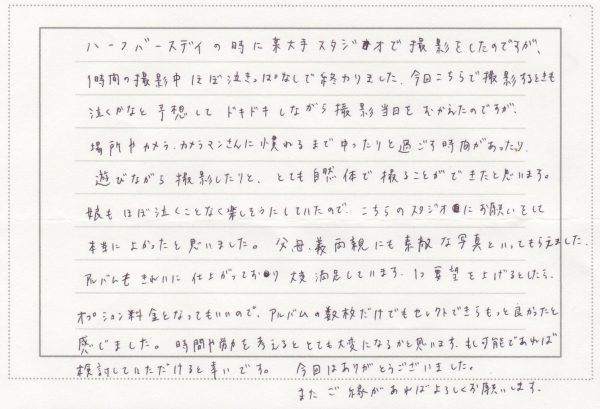 ハーフバースデイの時に某大手スタジオで撮影をしたのですが、
1時間の撮影中ほぼ泣きっぱなしで終わりました。今回こちらで撮影するときも
泣くかなと予想してドキドキしながら撮影当日をむかえたのですが、
場所やカメラ、カメラマンさんに慣れるまでゆったりと過ごす時間があったり、
遊びながら撮影したりと、とても自然体で撮ることができたと思います。
娘もほぼ泣くことなく楽しそうにしていたので、こちらのスタジオにお願いをして
本当によかったと思いました。父母、義両親にも素敵な写真といってもらえました。
アルバムもきれいに仕上がっており大変満足しています。1つ要望を上げるとしたら、
オプション料金となってもいいので、アルバムの数枚だけでもセレクトできたらもっと良かったと
感じました。時間や労力を考えるととても大変になるかと思います。もし可能であれば
検討していただけると幸いです。今回はありがとうございました。
またご縁があればよろしくお願いします。